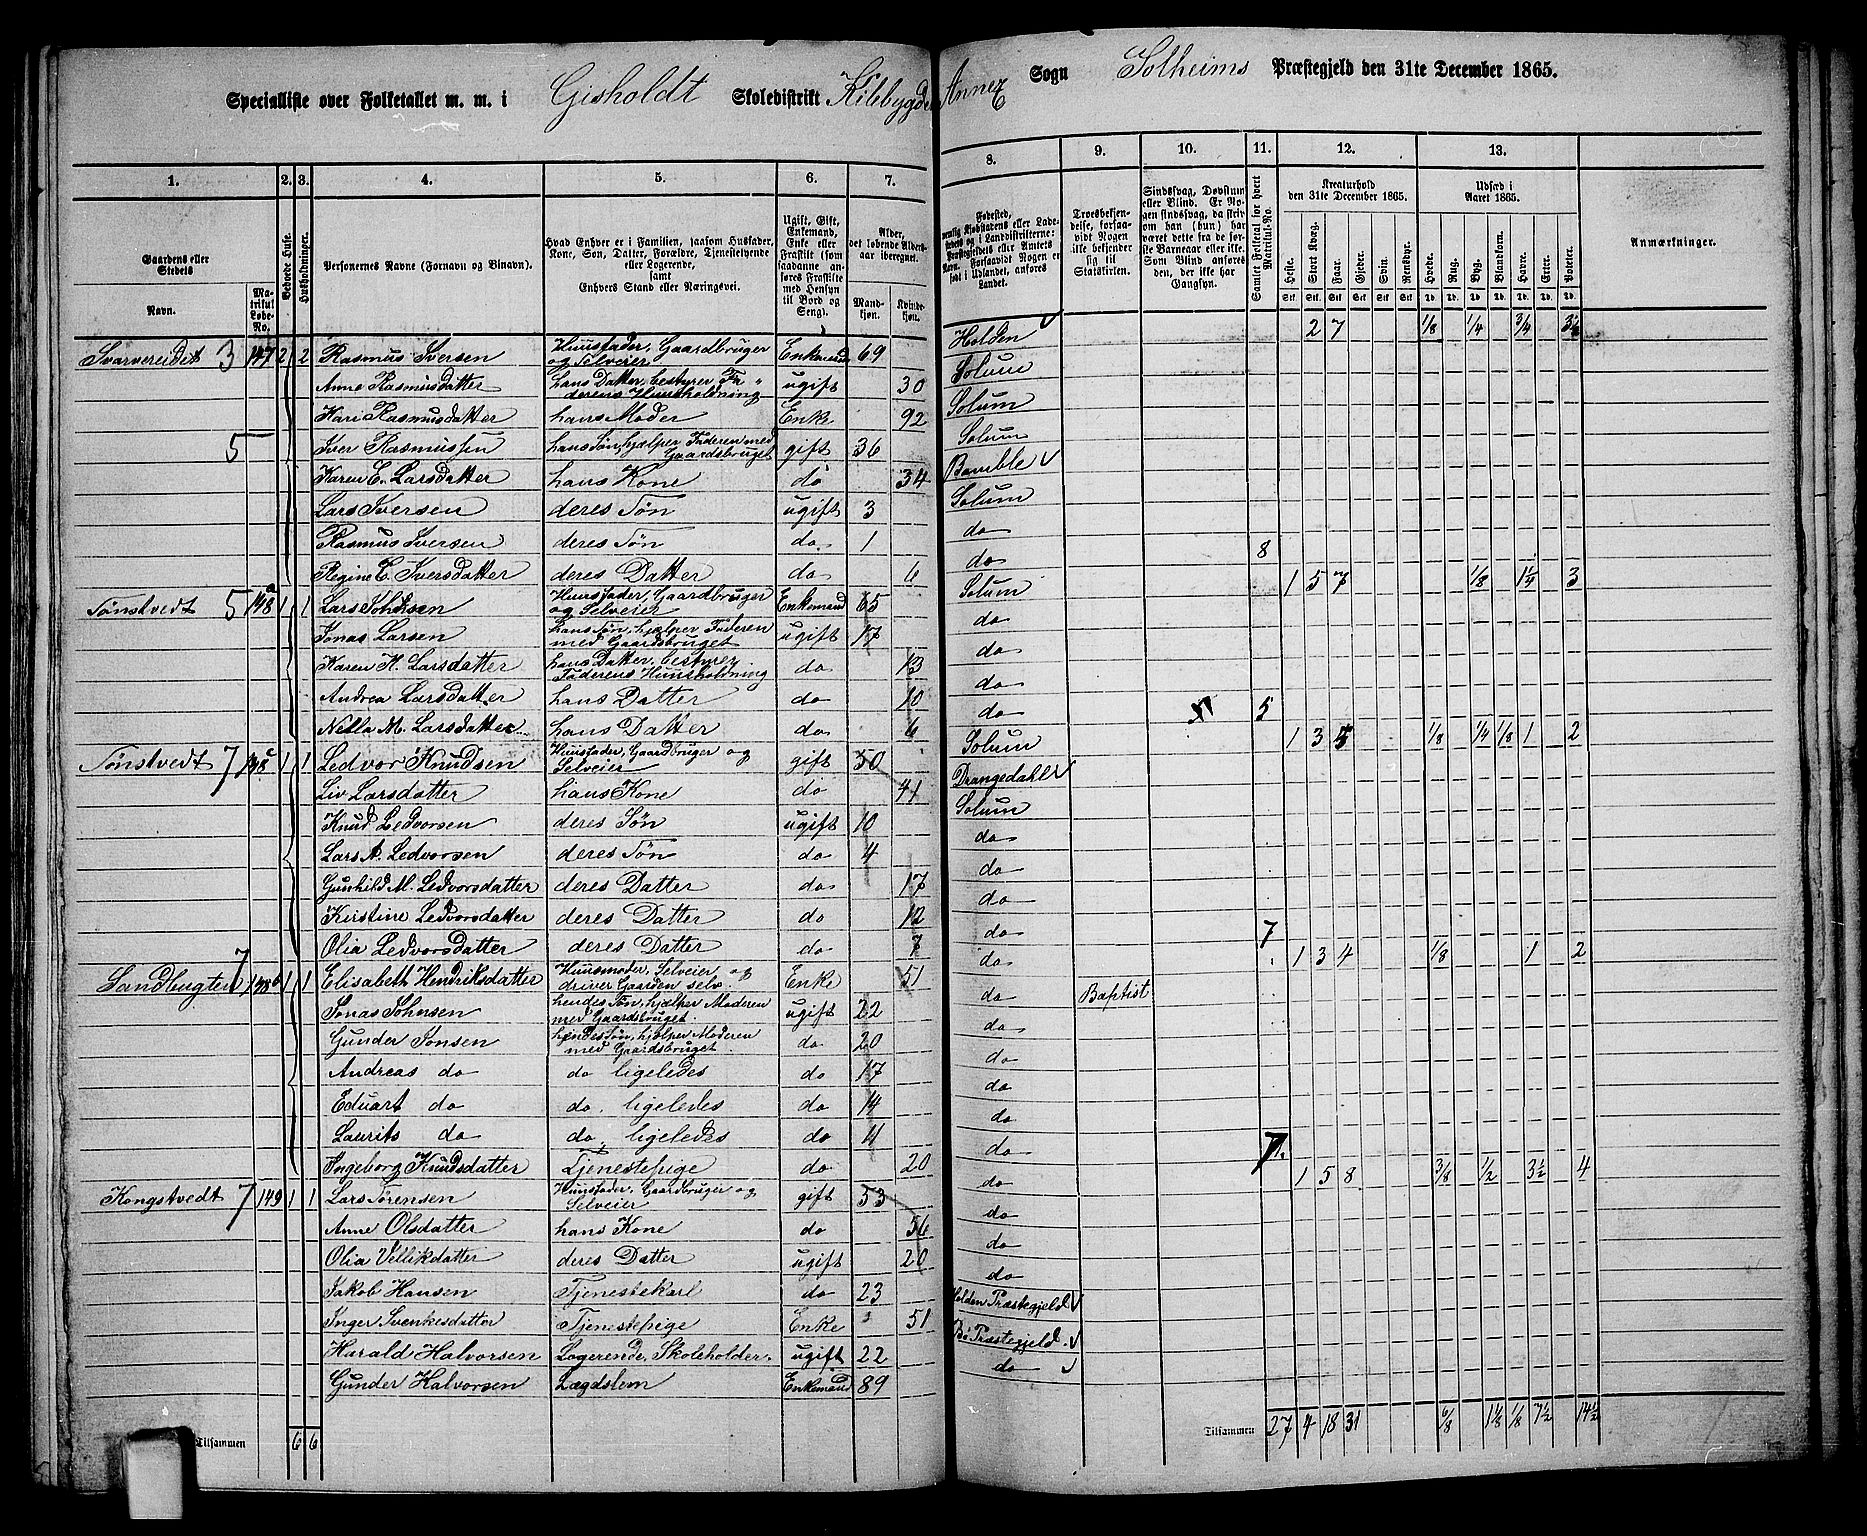 Specialliste over Folketallet m. m. i Gisholdt Skoledistrikt Kilebygdens Annex Sogn Solheims Præstegjeld den 31te December 1865.
1. 2. 3. 4. 5. 6. 7. 8. 9. 10. 11. 12. 13.
Gaardens eller Stedets
Navn. Matrikul Løbe-No.
Beboede Huse.
Husholdninger.
Personernes Navne (Fornavn og Binavn).
Hvad Enhver er i Familien, saasom Husfader, Kone, Søn, Datter, Forældre, Tjenestetyende eller Logerende, samt Enhvers Stand eller Næringsvei.
Ugift, Gift, Enkemand, Enke eller Fraskilt (som saadanne anføres Fraskilte med Hensyn til Bord og Seng).
Alder, det løbende Aldersaar iberegnet.
Mandkjøn. Kvindekjøn.
Troesbekjendelse, forsaavidt Nogen ikke bekjender sig til Statskirken.
Sindssvag, Døvstum eller Blind. Er Nogen sindssvag, da skriv om han (hun) har været dette fra de første Barneaar eller ikke. Som Blind anføres den, der ikke har Gangsyn.
Samlet Folketal for hvert Matrikul-No.
Kreaturhold den 31te December 1865.
Heste. Stort Kvæg. Faar. Gjeder. Svin. Rensdyr.
Udsæd i Aaret 1865.
Hvede. Rug. Byg. Blandkorn. Havre. Erter. Poteter.
Anmærkninger.
Svarvereidet 3 147 2 2 Rasmus Iversen Huusfader, Gaardbruger og Selveier Enkemand 69 Holden 2 7 1/8 1/4 3/4 3½
Anne Rasmusdatter hans Datter, bestyrer Faderens Huusholdning ugift 30 Solum
Kari Rasmusdatter hans Moder Enke 92 Solum
5 Iver Rasmussen hans Søn, hjælper Faderen med Gaardsbruget gift 36 Solum
Karen E. Larsdatter hans Kone do 34 Bamble
Lars Iversen deres Søn ugift 3 Solum
Rasmus Iversen deres Søn do 1 do
Regine E. Iversdatter deres Datter do 6 do 8
Tønstvedt 5 148a 1 1 Lars Johnsen Huusfader, Gaardbruger og Selveier Enkemand 65 Solum 1 5 7 1/8 1¼ 3
Jonas Larsen hans Søn, hjælper Faderen med Gaardsbruget ugift 17 do
Karen K. Larsdatter hans Datter, bestyrer Faderens Huusholdning do 13 do
Andrea Larsdatter hans Datter do 10 do
Nella M. Larsdatter hans Datter do 6 do 5
Tønstvedt 7 148 1 1 Ledvor Knudsen Huusfader, Gaardbruger og Selveier gift 50 Solum 1 3 5 1/8 1/4 1/8 1 2
Liv Larsdatter hans Kone do 41 Drangedahl
Knud Ledvorsen deres Søn ugift 10 Solum
Lars A. Ledvorsen deres Søn do 4 do
Gunhild M. Ledvorsdatter deres Datter do 17 do
Kirstine Ledvorsdatter deres Datter do 12 do
Olia Ledvorsdatter deres Datter do 7 do 7
Sandbugten 7 148b 1 1 Elisabeth Hendriksdatter Huusmoder, Selveier og driver Gaarden selv. Enke 51 do 1 3 4 1/8 1 2
Jonas Johnsen hendes Søn, hjælper Moderen med Gaardsbruget. ugift 22 do Baptist
Gunder Jonsen hendes Søn, hjælper Moderen med Gaardsbruget. do 20 do
Andreas do do ligeledes do 17 do
Eduart do do. ligeledes do 14 do
Laurits do do. ligeledes do 11 do
Ingeborg Knudsdatter Tjenestepige do 20 do 7
Kongstvedt 7 149 1 1 Lars Sørensen Huusfader, Gaardbruger og Selveier gift 53 do 1 5 8 3/8 1/2 3½ 4
Anne Olsdatter hans Kone do 56 do
Olia Vellikdatter deres Datter ugift 20 do
Jakob Hansen Tjenestekarl do 23 do
Inger Svenkesdatter Tjenestepige Enke 51 Holden Præstegjeld
Harald Halvorsen Logerende, Skoleholder. ugift 22 Bø Præstegjeld.
Gunder Halvorsen Lægdslem Enkemand 89 do
Tilsammen 6 6 Tilsammen 27 4 18 31 6/8 1⅛ 1/8 7½ 14½